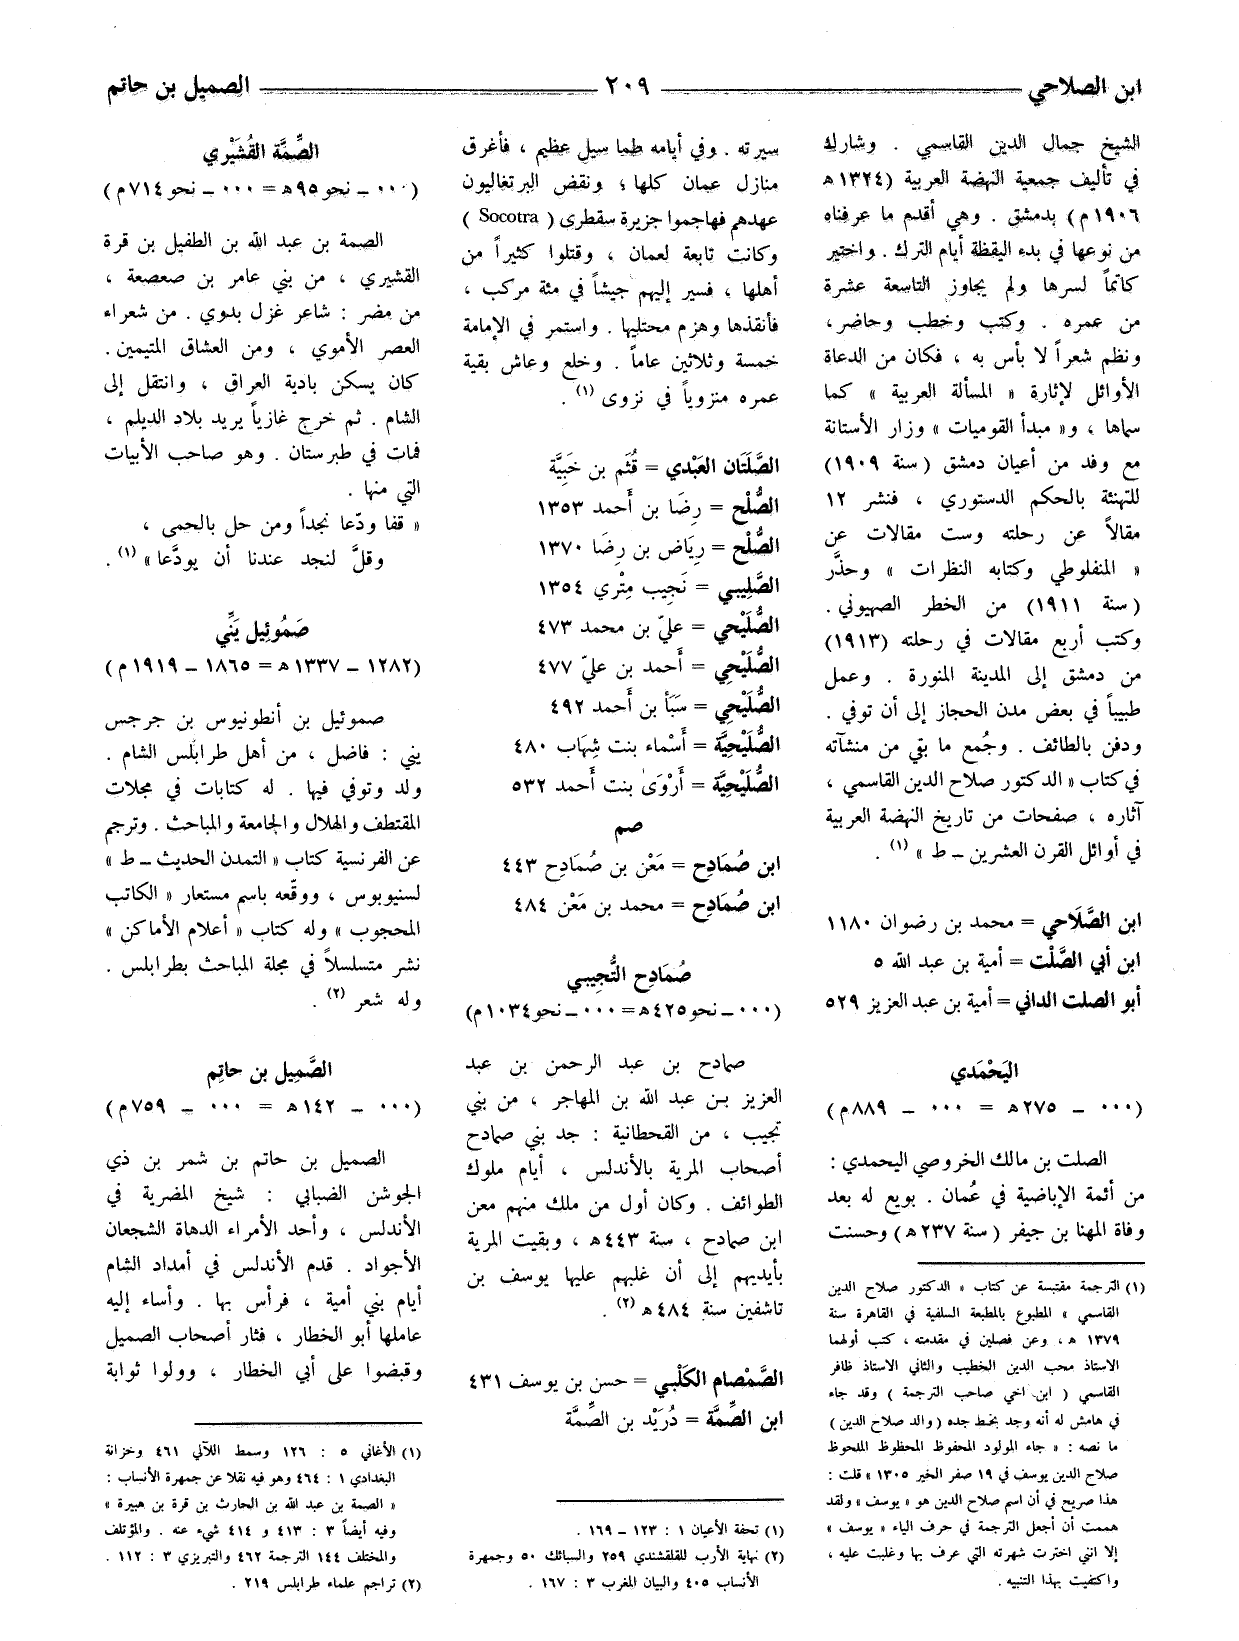 ابن الصلاحي
٢٠٩
الصميل بن حاتم
الشيخ جمال الدين القاسمي . وشارك
في تأليف جمعية النهضة العربية (١٣٢٤ هـ
١٩٠٦ م) بدمشق . وهي أقدم ما عرفناه
من نوعها في بدء اليقظة أيام الترك . واختير
كاتماً لسرها ولم يجاوز التاسعة عشرة
من عمره . وكتب وخطب وحاضر،
ونظم شعراً لا بأس به ، فكان من الدعاة
الأوائل لإثارة « المسألة العربية » كما
سماها ، و« مبدأ القوميات » وزار الأستانة
مع وفد من أعيان دمشق (سنة ١٩٠٩)
للتهنئة بالحكم الدستوري ، فنشر ١٢
مقالاً عن رحلته وست مقالات عن
« المنفلوطي وكتابه النظرات » وحذَّر
(سنة ١٩١١) من الخطر الصهيوني .
وكتب أربع مقالات في رحلته (١٩١٣)
من دمشق إلى المدينة المنورة . وعمل
طبيباً في بعض مدن الحجاز إلى أن توفي .
ودفن بالطائف . وجُمع ما بقي من منشآته
في كتاب « الدكتور صلاح الدين القاسمي ،
آثاره ، صفحات من تاريخ النهضة العربية
في أوائل القرن العشرين ــ ط » (١) .
ابن الصَّلَاحي = محمد بن رضوان ١١٨٠
ابن أبي الصَّلْت = أمية بن عبد الله ٥
أبو الصلت الداني = أمية بن عبد العزيز ٥٢٩
اليَحْمَدي
(٠٠٠ ــ ٢٧٥ هـ = ٠٠٠ ــ ٨٨٩ م)
الصلت بن مالك الخروصي اليحمدي :
من أئمة الإباضية في عُمان . بويع له بعد
وفاة المهنا بن جيفر (سنة ٢٣٧ هـ) وحسنت
(١) الترجمة مقتبسة عن كتاب « الدكتور صلاح الدين
القاسمي » المطبوع بالمطبعة السلفية في القاهرة سنة
١٣٧٩ هـ ، وعن فصلين في مقدمته ، كتب أولهما
الاستاذ محب الدين الخطيب والثاني الاستاذ ظافر
القاسمي ( ابن اخي صاحب الترجمة ) وقد جاء
في هامش له أنه وجد بخط جده (والد صلاح الدين)
ما نصه : « جاء المولود المحفوظ المحظوظ الملحوظ
صلاح الدين يوسف في ١٩ صفر الخير ١٣٠٥ » قلت :
هذا صريح في أن اسم صلاح الدين هو « يوسف » ولقد
هممت أن أجعل الترجمة في حرف الياء « يوسف »
إلا انني اخترت شهرته التي عرف بها وغلبت عليه ،
واكتفيت بهذا التنبيه .
سيرته . وفي أيامه طما سيل عظيم ، فأغرق
منازل عمان كلها ؛ ونقض البرتغاليون
عهدهم فهاجموا جزيرة سقطرى ( Socotra )
وكانت تابعة لعمان ، وقتلوا كثيراً من
أهلها ، فسير إليهم جيشاً في مئة مركب ،
فأنقذها وهزم محتليها . واستمر في الإمامة
خمسة وثلاثين عاماً . وخلع وعاش بقية
عمره منزوياً في نزوى (١) .
الصَّلَتَان العَبْدي = قُثَم بن خَبِيَّة
الصُّلْح = رِضَا بن أَحمد ١٣٥٣
الصُّلْح = رِيَاض بن رِضَا ١٣٧٠
الصَّلِيبي = نَجِيب مِتْري ١٣٥٤
الصُّلَيْحي = عليّ بن محمد ٤٧٣
الصُّلَيْحِي = أَحمد بن عليّ ٤٧٧
الصُّلَيْحِي = سَبَأ بن أحمد ٤٩٢
الصُّلَيْحِيَّة = أَسْماء بنت شِهَاب ٤٨٠
الصُّلَيْحِيَّة = أَرْوَىٰ بنت أَحمد ٥٣٢
صم
ابن صُمَادِح = مَعْن بن صُمَادِح ٤٤٣
ابن صُمَادِح = محمد بن مَعْن ٤٨٤
صُمَادِح التُّجِيبي
(٠٠٠ ــ نحو ٤٢٥ هـ = ٠٠٠ ــ نحو ١٠٣٤ م)
صمادح بن عبد الرحمن بن عبد
العزيز بن عبد الله بن المهاجر ، من بني
تجيب ، من القحطانية : جد بني صمادح
أصحاب المرية بالأندلس ، أيام ملوك
الطوائف . وكان أول من ملك منهم معن
ابن صمادح ، سنة ٤٤٣ هـ ، وبقيت المرية
بأيديهم إلى أن غلبهم عليها يوسف بن
تاشفين سنة ٤٨٤ هـ (٢) .
الصَّمْصام الكَلْبي = حسن بن يوسف ٤٣١
ابن الصِّمَّة = دُرَيْد بن الصِّمَّة
(١) تحفة الأعيان ١ : ١٢٣ ــ ١٦٩ .
(٢) نهاية الأرب للقلقشندي ٢٥٩ والسبائك ٥٠ وجمهرة
الأنساب ٤٠٥ والبيان المغرب ٣ : ١٦٧ .
الصِّمَّة القُشَيْري
(٠٠٠ ــ نحو ٩٥ هـ = ٠٠٠ ــ نحو ٧١٤ م)
الصمة بن عبد الله بن الطفيل بن قرة
القشيري ، من بني عامر بن صعصعة ،
من مضر : شاعر غزل بدوي . من شعراء
العصر الأموي ، ومن العشاق المتيمين .
كان يسكن بادية العراق ، وانتقل إلى
الشام . ثم خرج غازياً يريد بلاد الديلم ،
فمات في طبرستان . وهو صاحب الأبيات
التي منها .
« قفا ودّعا نجداً ومن حل بالحمى ،
وقلَّ لنجد عندنا أن يودَّعا » (١) .
صَمُوئِيل يَنِّي
(١٢٨٢ ــ ١٣٣٧ هـ = ١٨٦٥ ــ ١٩١٩ م)
صموئيل بن أنطونيوس بن جرجس
يني : فاضل ، من أهل طرابلس الشام .
ولد وتوفي فيها . له كتابات في مجلات
المقتطف والهلال والجامعة والمباحث . وترجم
عن الفرنسية كتاب « التمدن الحديث ــ ط »
لسنيوبوس ، ووقّعه باسم مستعار « الكاتب
المحجوب » وله كتاب « أعلام الأماكن »
نشر متسلسلاً في مجلة المباحث بطرابلس .
وله شعر (٢) .
الصَّمِيل بن حاتِم
(٠٠٠ ــ ١٤٢ هـ = ٠٠٠ ــ ٧٥٩ م)
الصميل بن حاتم بن شمر بن ذي
الجوشن الضبابي : شيخ المضرية في
الأندلس ، وأحد الأمراء الدهاة الشجعان
الأجواد . قدم الأندلس في أمداد الشام
أيام بني أمية ، فرأس بها . وأساء إليه
عاملها أبو الخطار ، فثار أصحاب الصميل
وقبضوا على أبي الخطار ، وولوا ثوابة
(١) الأغاني ٥ : ١٢٦ وسمط اللآلي ٤٦١ وخزانة
البغدادي ١ : ٤٦٤ وهو فيه نقلا عن جمهرة الأنساب :
« الصمة بن عبد الله بن الحارث بن قرة بن هبيرة »
وفيه أيضاً ٣ : ٤١٣ و ٤١٤ شيء عنه . والمؤتلف
والمختلف ١٤٤ الترجمة ٤٦٢ والتبريزي ٣ : ١١٢ .
(٢) تراجم علماء طرابلس ٢١٩ .